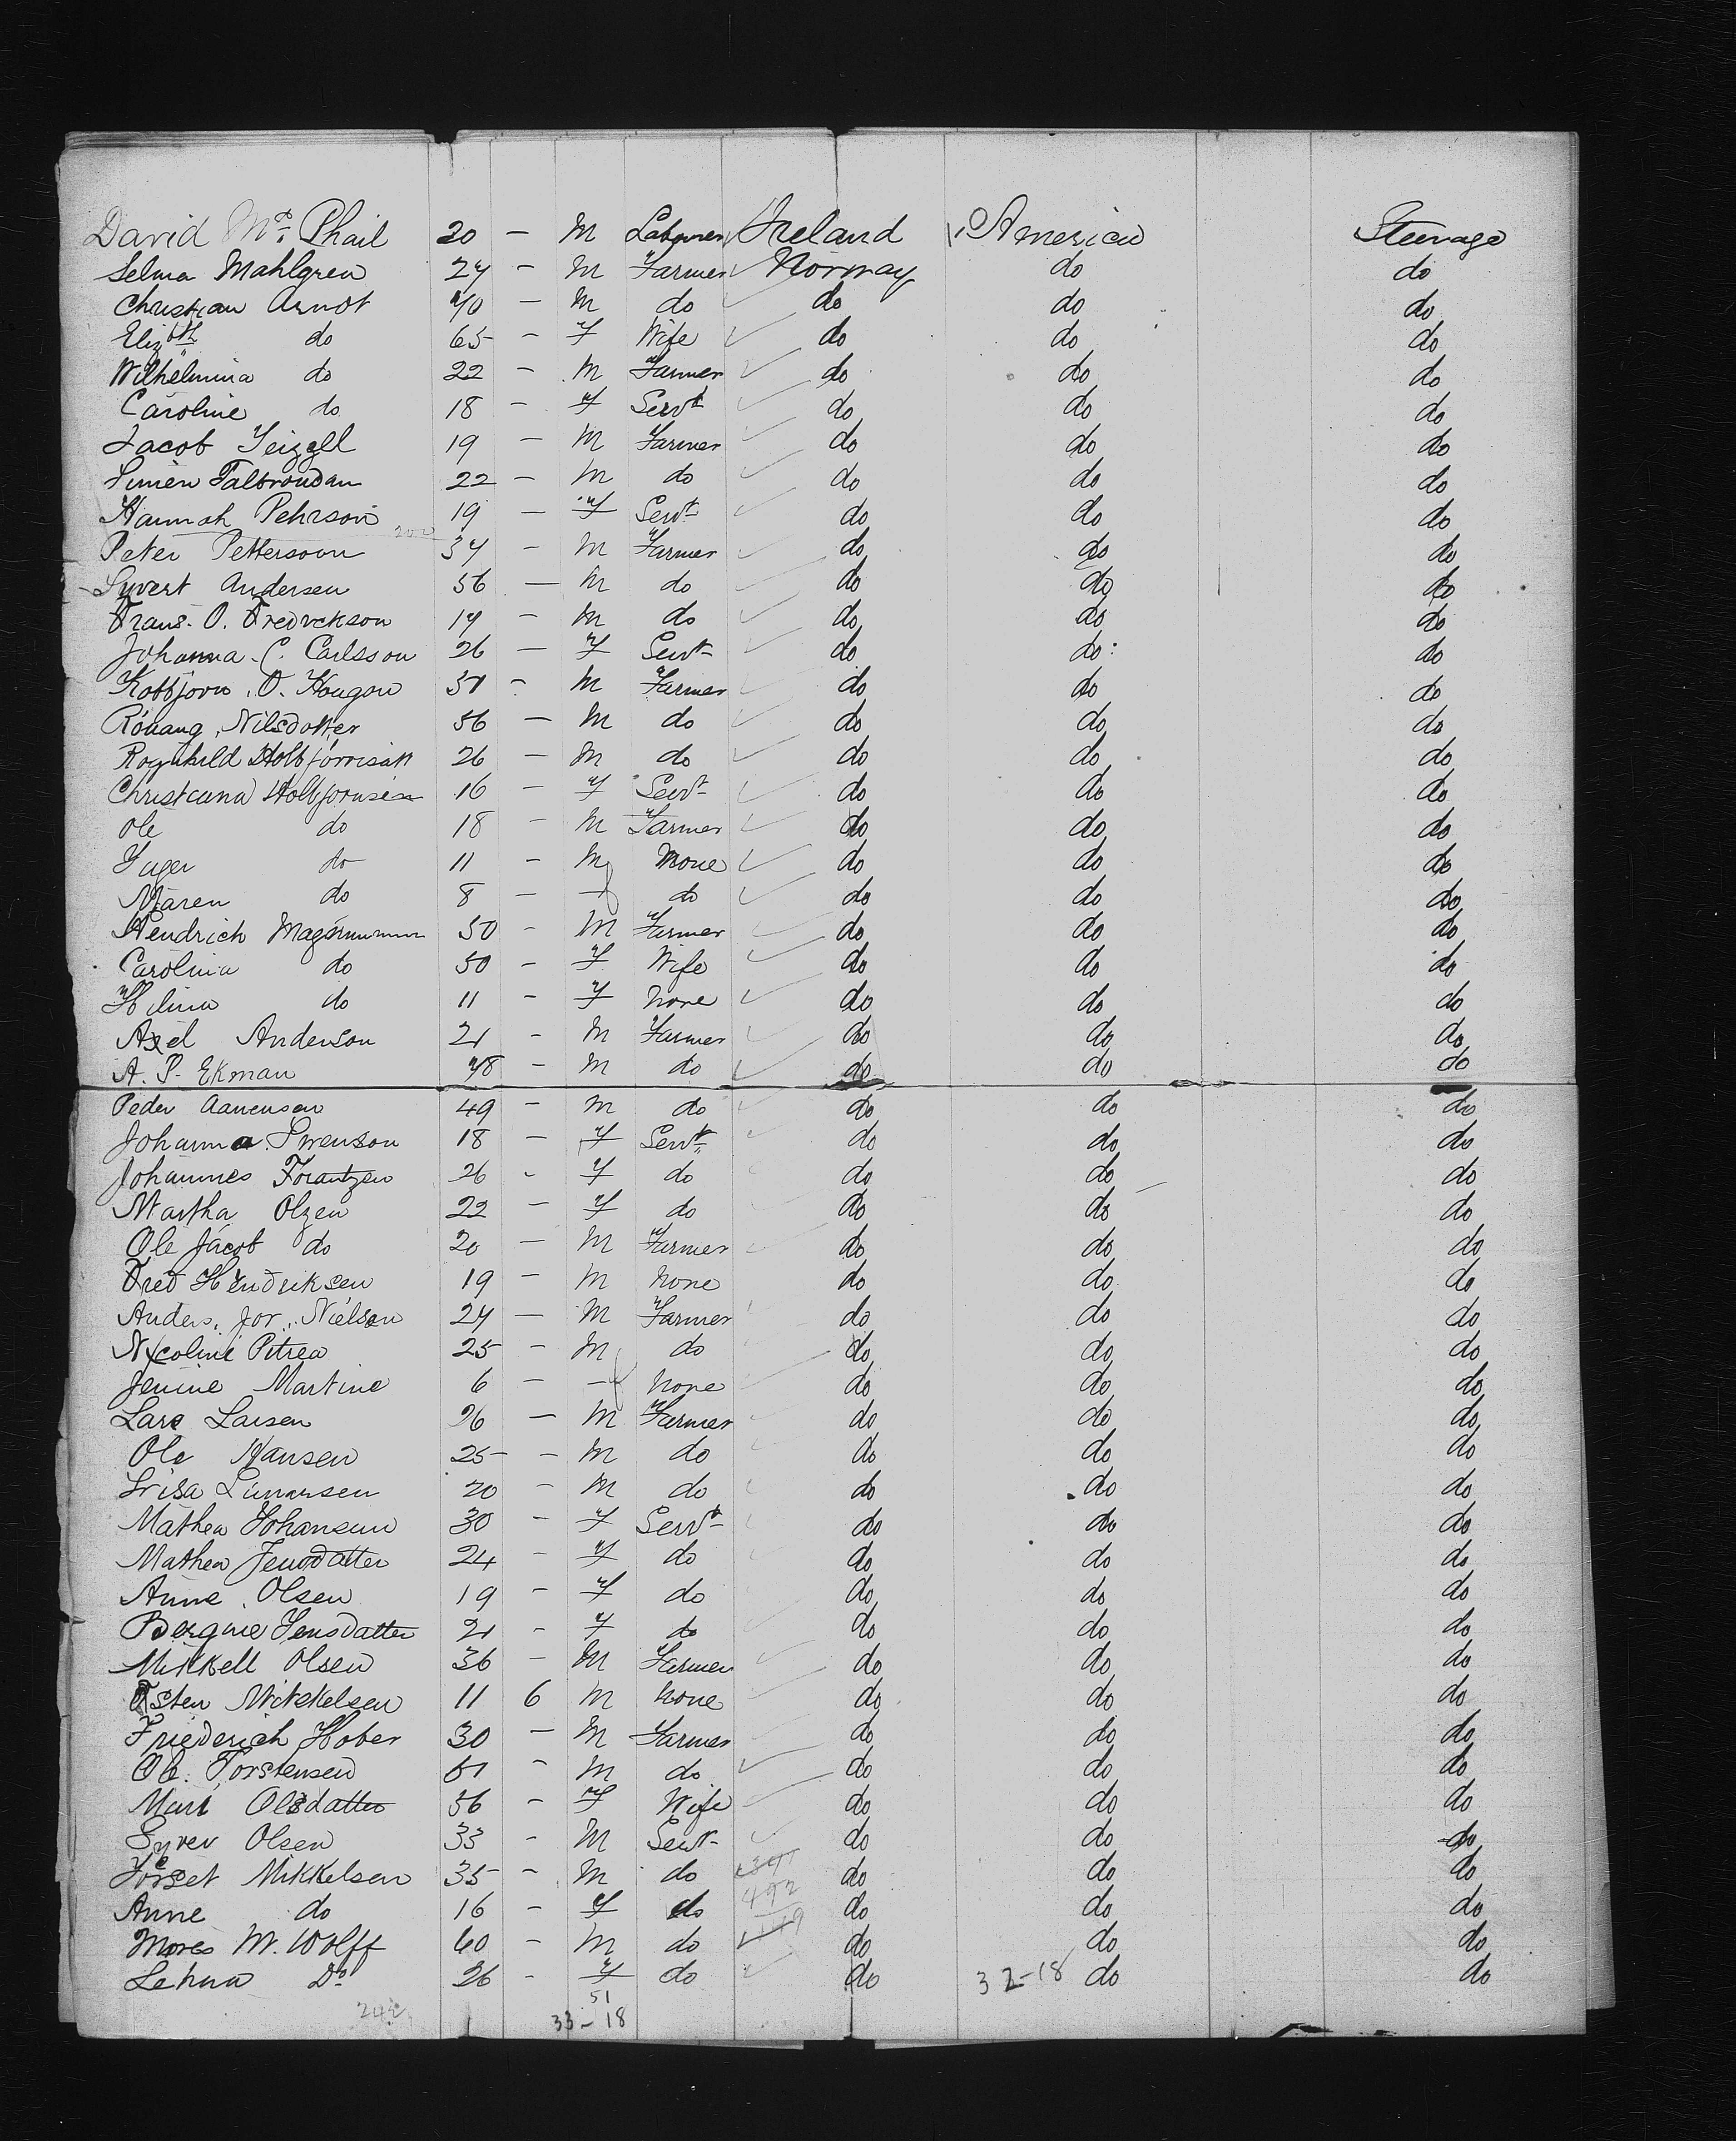 David Mc Phail 20 — M Labourer Ireland America Steerage
Selma Mahlgren 24 — M Farmer Norway do do
Christian Arndt 40 — M do do do do
Elizth do 65 — F Wife do do do
Wilhelmina do 22 — M Farmer do do do
Caroline do 18 — F Servt do do do
Jacob 19 — M Farmer do do do
Simen 22 — M do do do do
Hannah Pehrson 19 — F Servt do do do
Peter Petterson 34 — M Farmer do do do
Syvert Andersen 56 — M do do do do
Frans. O. Fredrckson 19 — M do do do do
Johanna C. Carlsson 26 — F Servt do do do
Kolbjorn O. Hougon 51 — M Farmer do do do
Nilsdotter 56 — M do do do do
Rognhild 26 — M do do do do
Christiana Holbjornsen 16 — F Servt do do do
Ole do 18 — M Farmer do do do
do 11 — M None do do do
Maren do 8 — f do do do do
Hendrich 50 — M Farmer do do do
Carolina do 50 — F Wife do do do
Hilina do 11 — F None do do do
Axel Anderson 21 — M Farmer do do do
A. P. Ekman 48 — M do do do do
Peder Aanensen 49 — M do do do do
Johanna Swenson 18 — F Servt do do do
Johannes Frantzen 26 — F do do do do
Martha Olzen 22 — F do do do do
Ole Jacob do 20 — M Farmer do do do
Fred Hendriksen 19 — M None do do do
Anders. Jor. Nielsen 24 — M Farmer do do do
Nicoline Petrea 25 — M do do do do
Jenine Martine 6 — f None do do do
Lars Larsen 26 — M Farmer do do do
Ole Hansen 25 — M do do do do
20 — M do do do do
Mathea Johansen 30 — F Servt do do do
Mathea Jensdatter 24 — F do do do do
Anne Olsen 19 — F do do do do
Jensdatter 21 — F do do do do
Mikkell Olsen 36 — M Farmer do do do
Osten Mikkelsen 11 6 M None do do do
Friederich Hober 30 — M Farmer do do do
Ole Torstensen 61 — M do do do do
Mari Olsdatter 56 — F Wife do do do
Syver Olsen 33 — M Servt do do do
Mikkelsen 35 — M do do do do
Anne do 16 — F do 492 do do do
M. Wolff 60 — M do do do do
Lehna Do 26 — F do do 32-18 do do
51
33-18